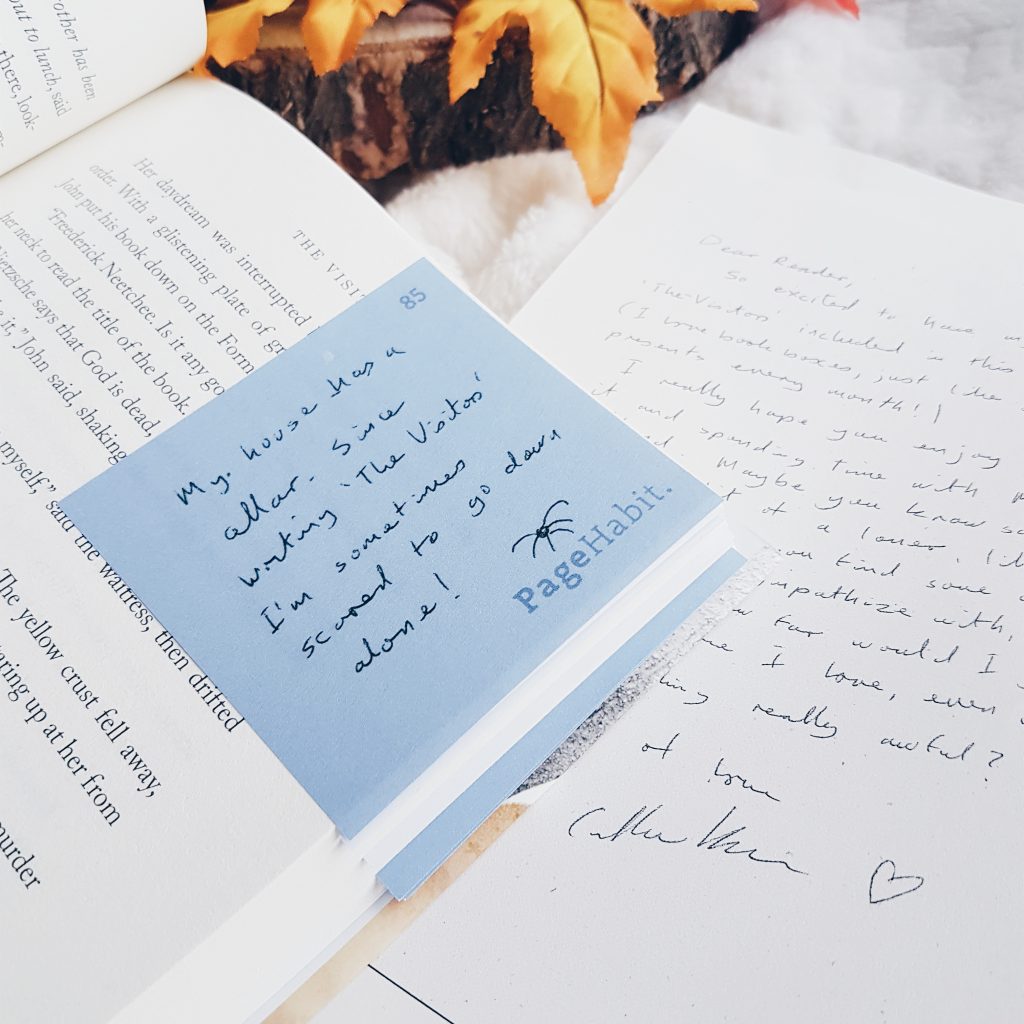 other has been
out to lunch, said
there, look-
THE VISIT
Her daydream was interrupted
order. With a glistening plate of
John put his book down on the Form
"Freederick Neetchee. Is it any go
her neck to read the title of the book.
Nietzsche says that God is dead,
it," John said, shaking
myself," said the waitress, then drifted
The yellow crust fell away,
aring up at her from
murder
85
My house has a
cellar. Since
writing 'The Visitor'
I'm sometimes
scared to go down
alone!
PageHabit.
Dear Reader,
So excited to have my
'The Visitor' included in this
(I love book boxes, just like
presents every month!)
I really hope you enjoy
it and spending time with
Maybe you know so
of a loner. I
you find some
mpathize with,
w far would I
me I love, even
hing really awful?
of love